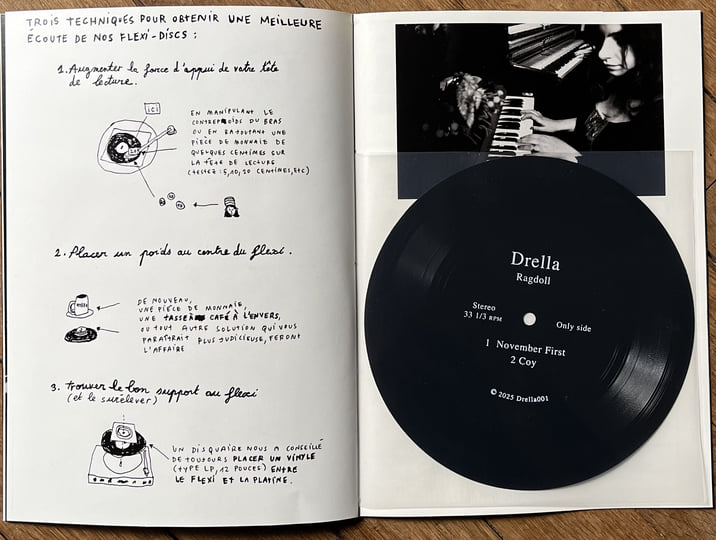 TROIS TECHNIQUES POUR OBTENIR UNE MEILLEURE
ÉCOUTE DE NOS FLEXI-DISCS :
1. Augmenter la force d'appui de votre tête
de lecture.
ici
EN MANIPULANT LE
CONTREPOIDS DU BRAS
OU EN RAJOUTANT UNE
PIÈCE DE MONNAIE DE
QUELQUES CENTIMES SUR
LA TÊTE DE LECTURE
(TESTER : 5, 10, 20 CENTIMES, ETC)
2. Placer un poids au centre du flexi.
DE NOUVEAU,
UNE PIÈCE DE MONNAIE,
UNE TASSE À CAFÉ À L'ENVERS,
OU TOUT AUTRE SOLUTION QUI VOUS
PARAÎTRAIT PLUS JUDICIEUSE, FERONT
L'AFFAIRE
3. Trouver le bon support au flexi
(et le surélever)
UN DISQUAIRE NOUS A CONSEILLÉ
DE TOUJOURS PLACER UN VINYLE
(TYPE LP, 12 POUCES) ENTRE
LE FLEXI ET LA PLATINE.
Drella
Ragdoll
Stereo
33 1/3 RPM
Only side
1 November First
2 Coy
© 2025 Drella001